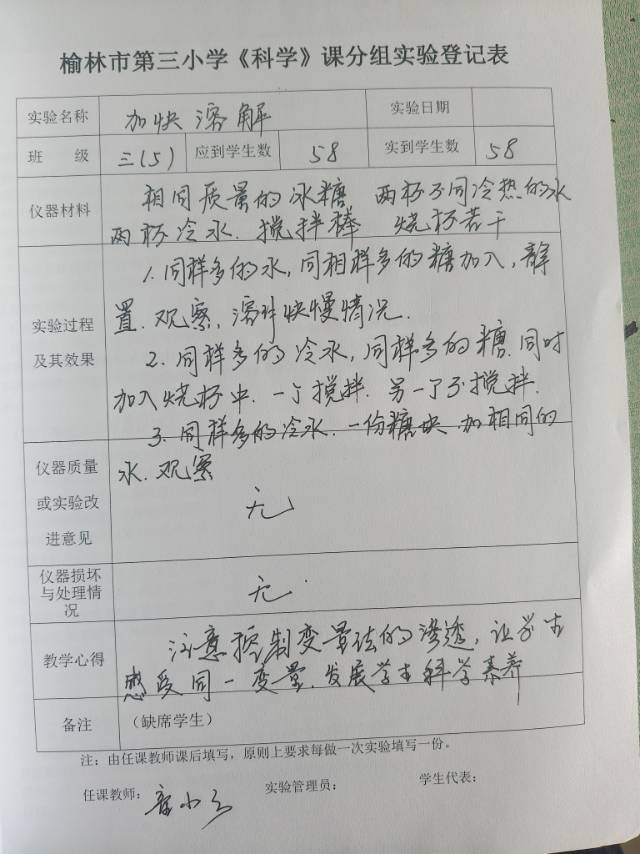 榆林市第三小学《科学》课分组实验登记表
实验名称 加快溶解 实验日期
班 级 三(5) 应到学生数 58 实到学生数 58
仪器材料 相同质量的冰糖 两杯不同冷热的水
两杯冷水. 搅拌棒 烧杯若干
1. 同样多的水, 同相样多的糖加入, 静
置. 观察, 溶解快慢情况.
实验过程
及其效果
2. 同样多的冷水, 同样多的糖. 同时
加入烧杯中. 一个搅拌. 另一个不搅拌.
3. 同样多的冷水. 一份糖块 加相同的
水. 观察
仪器质量
或实验改
进意见
无
仪器损坏
与处理情
况
无
教学心得 注意控制变量法的渗透, 让学生
感受同一变量. 发展学生科学素养
备注 (缺席学生)
注: 由任课教师课后填写, 原则上要求每做一次实验填写一份。
任课教师: 实验管理员: 学生代表: